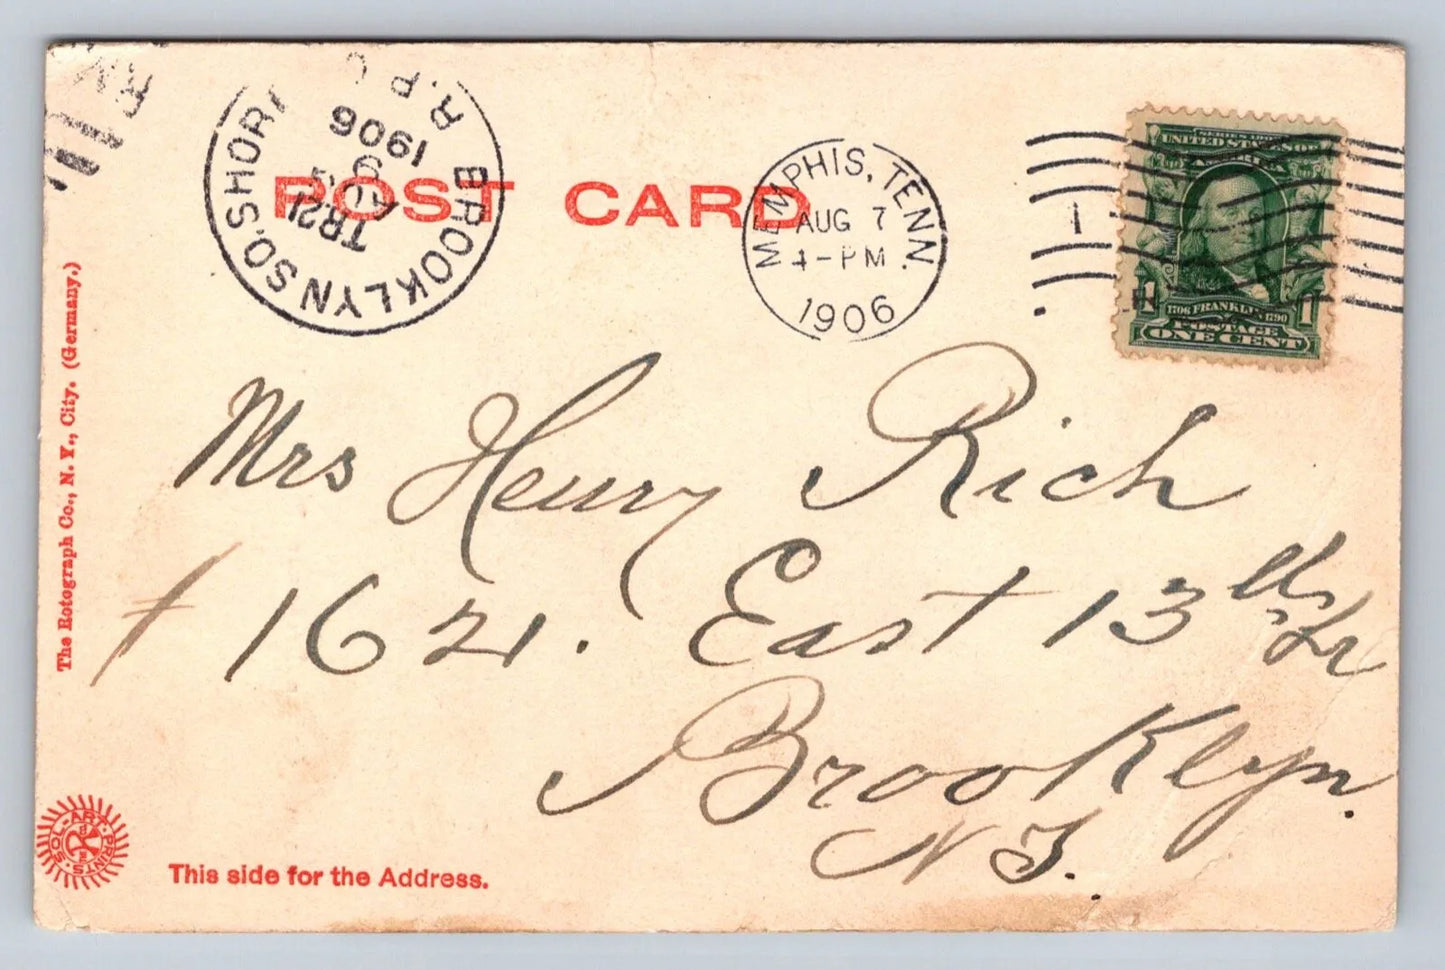 POST CARD
BROOKLYN SO. SHOR
R.P.
TR21
AUG
9
1906
MEMPHIS, TENN.
AUG 7
4-PM
1906
1
SERIES 1902
UNITED STATES OF AMERICA
1706 FRANKLIN 1790
POSTAGE
ONE CENT
1 1
Mrs Henry Rich
1621. East 13th
Brooklyn.
N
The Rotograph Co., N. Y., City. (Germany.)
SOL-ART PRINTS
This side for the Address.